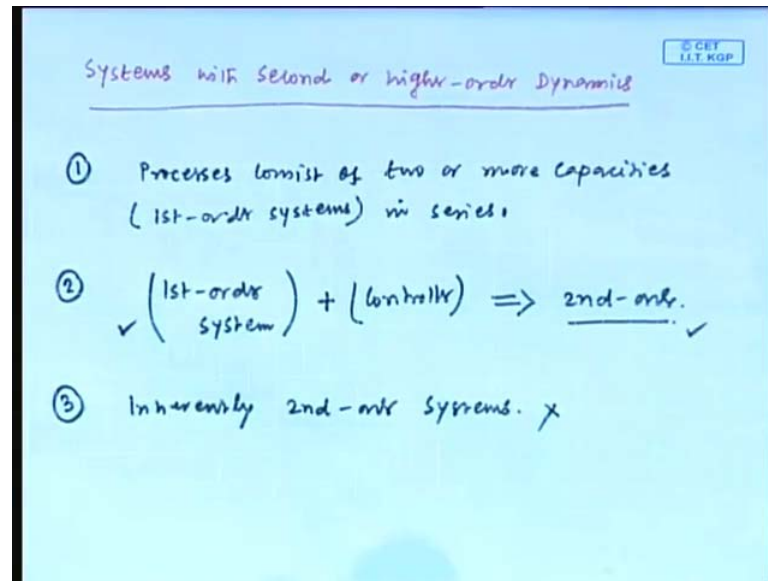 © CET
I.I.T. KGP
Systems with Second or higher-order Dynamics
① Processes consist of two or more capacities
(1st-order systems) in series.
② (1st-order system) + (controller) => 2nd-order.
✓ ✓
③ Inherently 2nd-order systems. x